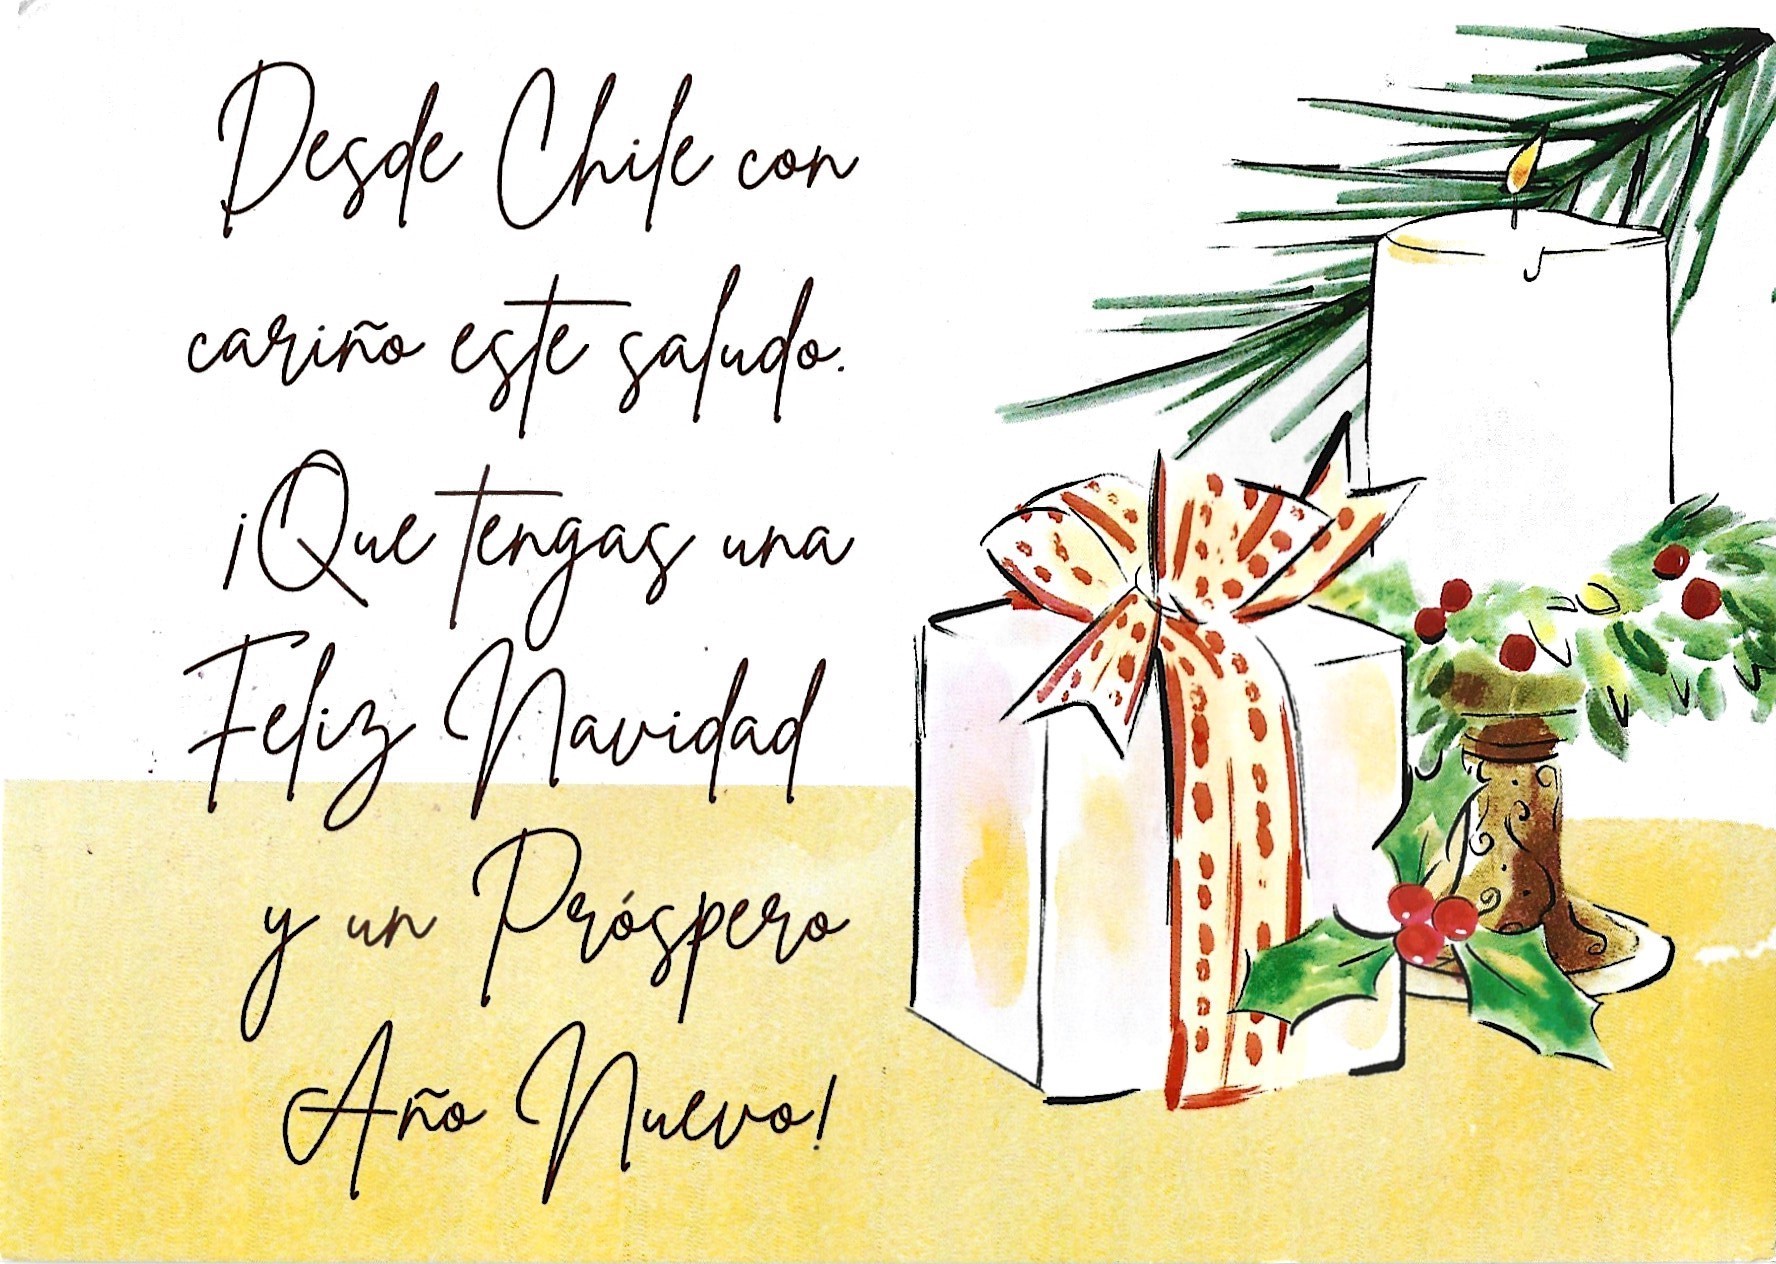 Desde Chile con
cariño este saludo.
¡Que tengas una
Feliz Navidad
y un Próspero
Año Nuevo!